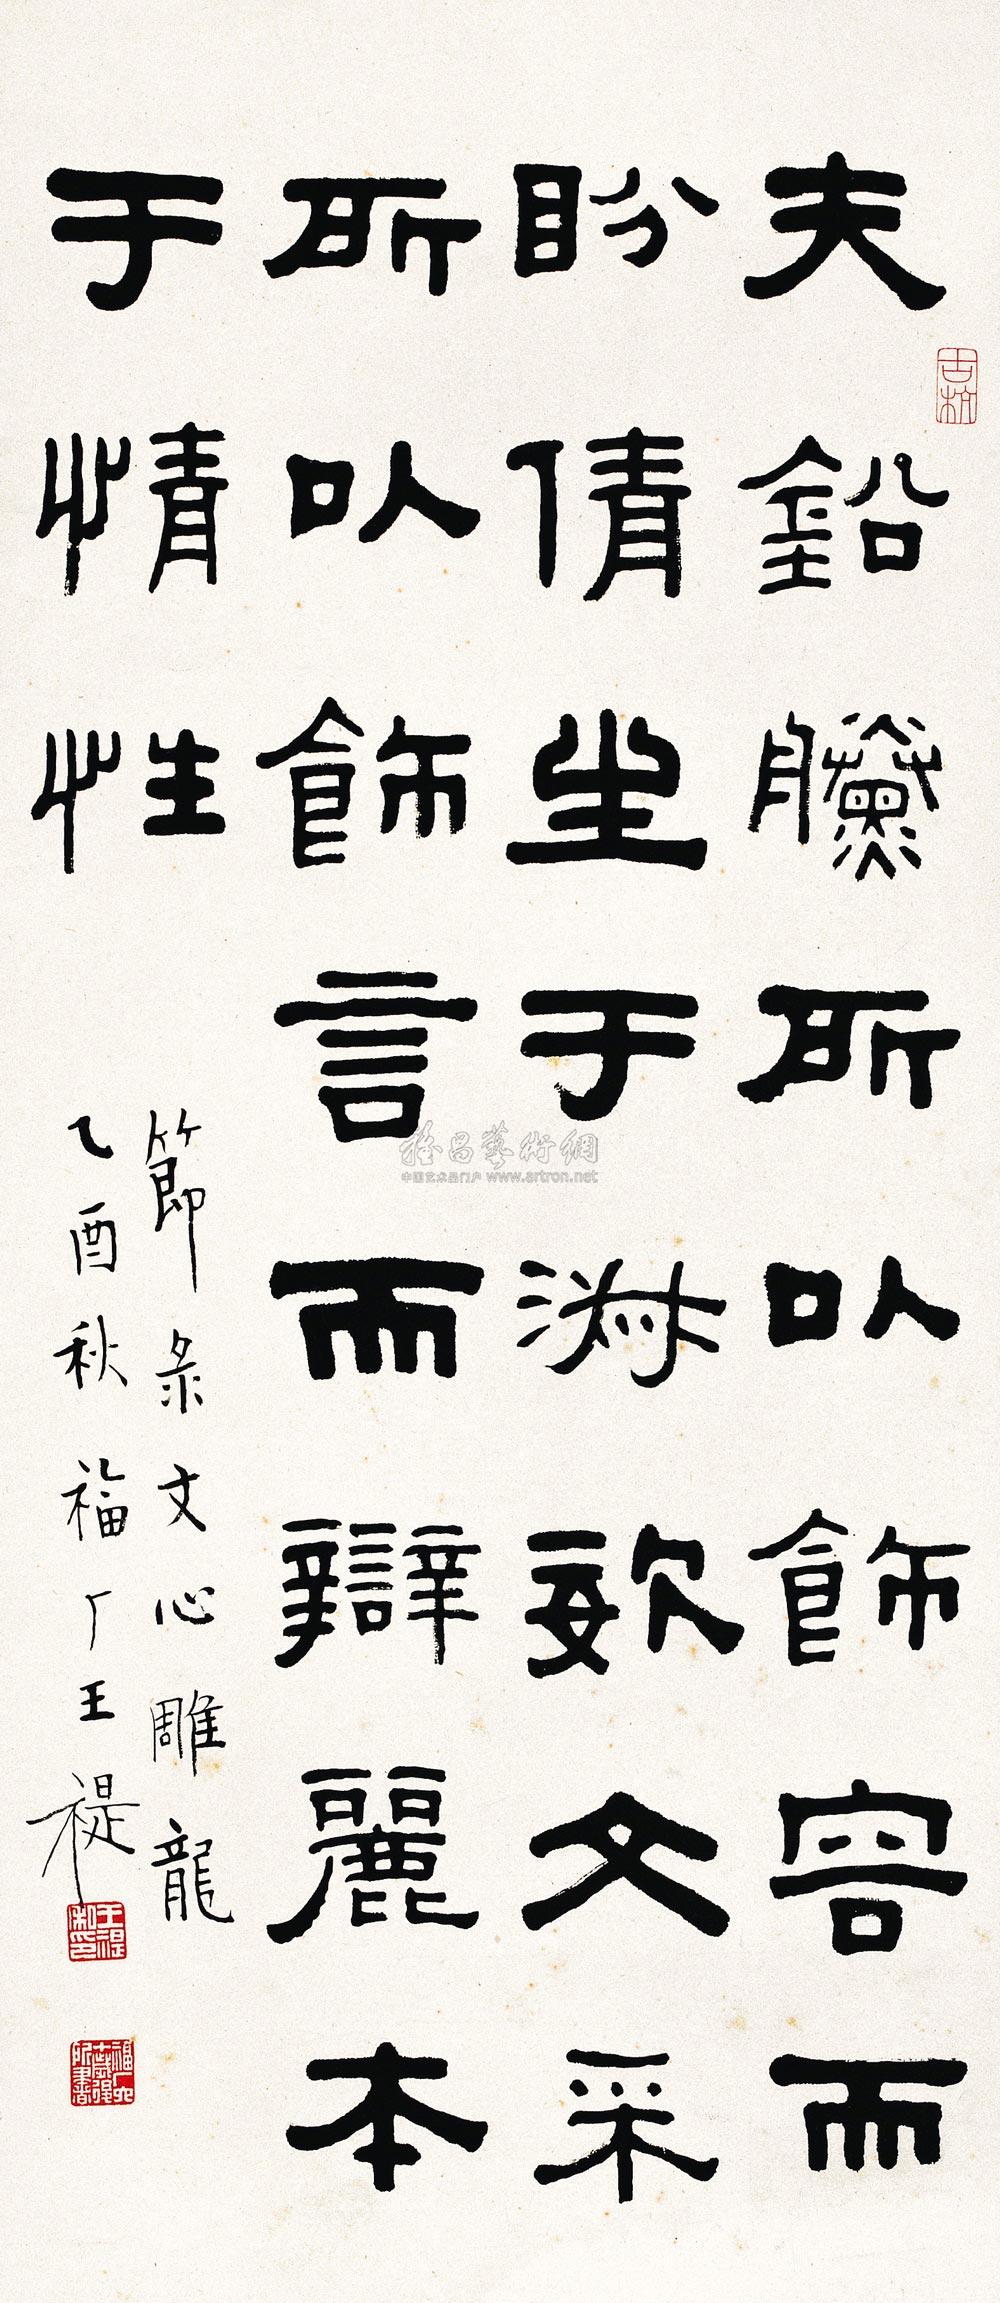 夫鉛黱所以飾容而
盼倩生于淑姿文采
所以飾言而辯麗本
于情性
節录文心雕龍
乙酉秋福厂王禔
古杭
王禔私印
福厂六十歲後所書
雅昌藝術網
中国艺术品门户 www.artron.net